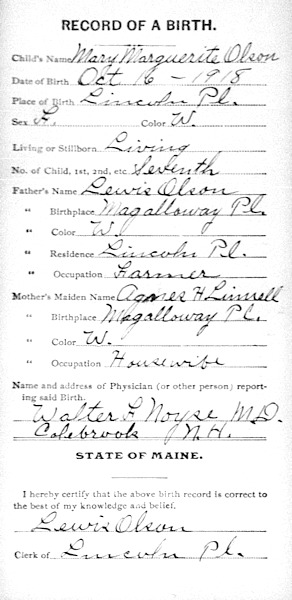 RECORD OF A BIRTH.
Child's Name Mary Marguerite Olson
Date of Birth Oct 16 - 1918
Place of Birth Lincoln Pl.
Sex F. Color W.
Living or Stillborn Living
No. of Child, 1st, 2nd, etc. Seventh
Father's Name Lewis Olson
" Birthplace Magalloway Pl.
" Color W.
" Residence Lincoln Pl.
" Occupation Farmer
Mother's Maiden Name Agnes H Linnell
" Birthplace Magalloway Pl.
" Color W.
" Occupation Housewife
Name and address of Physician (or other person) report-
ing said Birth.
Walter F Noyse M.D.
Colebrook N.H.
STATE OF MAINE.
I hereby certify that the above birth record is correct to
the best of my knowledge and belief.
Lewis Olson
Clerk of Lincoln Pl.